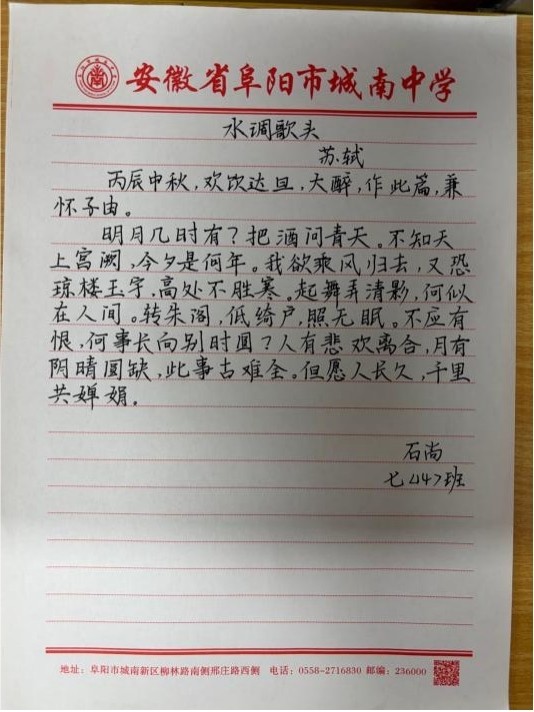 安徽省阜阳市城南中学
水调歌头
苏轼
丙辰中秋，欢饮达旦，大醉，作此篇，兼
怀子由。
明月几时有？把酒问青天。不知天
上宫阙，今夕是何年。我欲乘风归去，又恐
琼楼玉宇，高处不胜寒。起舞弄清影，何似
在人间。转朱阁，低绮户，照无眠。不应有
恨，何事长向别时圆？人有悲欢离合，月有
阴晴圆缺，此事古难全。但愿人长久，千里
共婵娟。
石尚
七<14>班
地址：阜阳市城南新区柳林路南侧邢庄路西侧 电话：0558-2716830 邮编：236000